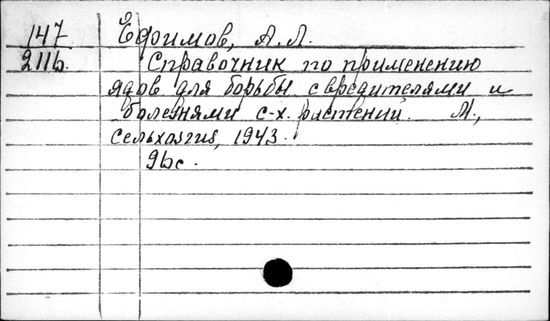 147 Ефимов, А.Л.
211b. Справочник по применению
ядов для борьбы с вредителями и
болезнями с-х. растений. М.,
Сельхозгиз, 1943.
96с.